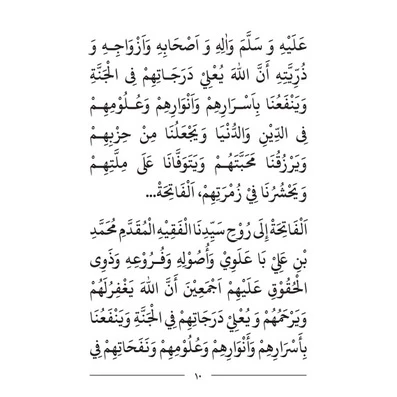 عَلَيْهِ وَ سَلَّمَ وَاٰلِهِ وَ اَصْحَابِهِ وَاَزْوَاجِهِ وَ
ذُرِّيَّتِهِ أَنَّ اللهَ يُعْلِيْ دَرَجَاتِهِمْ فِى الْجَنَّةِ
وَيَنْفَعُنَا بِاَسْرَارِهِمْ وَاَنْوَارِهِمْ وَعُلُوْمِهِمْ
فِى الدِّيْنِ وَالدُّنْيَا وَيَجْعَلُنَا مِنْ حِزْبِهِمْ
وَيَرْزُقُنَا مَحَبَّتَهُمْ وَيَتَوَفَّانَا عَلَى مِلَّتِهِمْ
وَيَحْشُرُنَا فِيْ زُمْرَتِهِمْ، اَلْفَاتِحَةْ...
اَلْفَاتِحَةْ إِلَى رُوْحِ سَيِّدِنَا الْفَقِيْهِ الْمُقَدَّمِ مُحَمَّدِ
بْنِ عَلِيْ بَا عَلَوِيْ وَأُصُوْلِهِ وَفُرُوْعِهِ وَذَوِى
الْحُقُوْقِ عَلَيْهِمْ اَجْمَعِيْنَ أَنَّ اللهَ يَغْفِرُلَهُمْ
وَيَرْحَمُهُمْ وَ يُعْلِيْ دَرَجَاتِهِمْ فِي الْجَنَّةِ وَيَنْفَعُنَا
بِأَسْرَارِهِمْ وَأَنْوَارِهِمْ وَعُلُوْمِهِمْ وَنَفَحَاتِهِمْ فِي
١٠